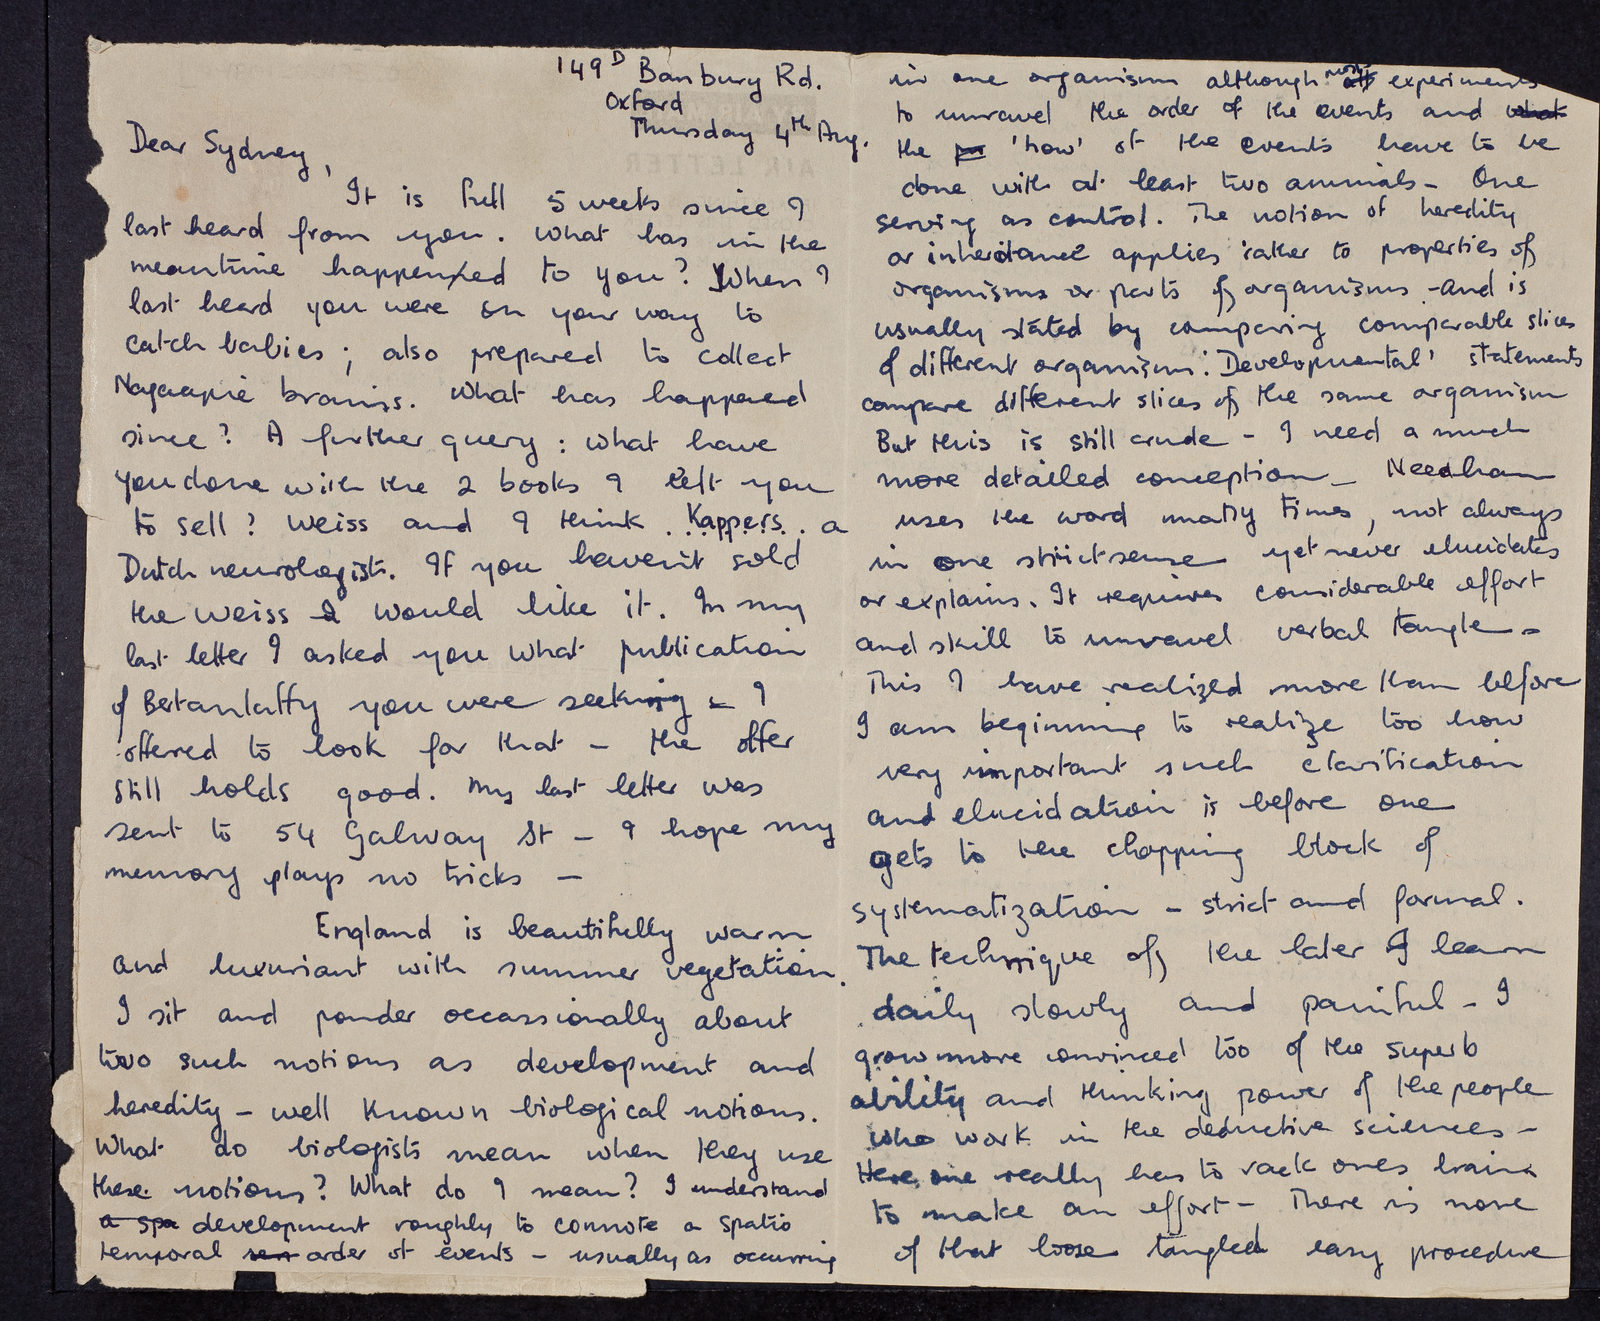 149D Banbury Rd.
Oxford
Thursday 4th Aug.
Dear Sydney,
It is full 5 weeks since I
last heard from you. What has in the
meantime happened to you? When I
last heard you were on your way to
catch babies; also prepared to collect
Nagaapie brains. What has happened
since? A further query: what have
you done with the 2 books I left you
to sell? Weiss and I think Kappers. a
Dutch neurologist. If you haven't sold
the Weiss I would like it. In my
last letter I asked you what publication
of Bertanlaffy you were seeking – I
offered to look for that – the offer
still holds good. My last letter was
sent to 54 Galway St – I hope my
memory plays no tricks –
England is beautifully warm
and luxuriant with summer vegetation.
I sit and ponder occassionally about
two such notions as development and
heredity – well known biological notions.
What do biologists mean when they use
these notions? What do I mean? I understand
a spa development roughly to connote a spatio
temporal order of events – usually as occurring
in one organism although most all experiments
to unravel the order of the events and what
the 'how' of the events have to be
done with at least two animals – One
serving as control. The notion of heredity
or inheritance applies rather to properties of
organisms or parts of organisms – and is
usually stated by comparing comparable slices
of different organisms. 'Developmental' statements
compare different slices of the same organism
But this is still crude – I need a much
more detailed conception – Needham
uses the word many times, not always
in one strict sense yet never elucidates
or explains. It requires considerable effort
and skill to unravel verbal tangle –
This I have realized more than before
I am beginning to realize too how
very important such clarification
and elucidation is before one
gets to the chopping block of
systematization – strict and formal.
The technique of the later I learn
daily slowly and painful – I
grow more convinced too of the superb
ability and thinking power of the people
who work in the deductive sciences –
Here one really has to rack ones brains
to make an effort – There is none
of that loose tangled easy procedure